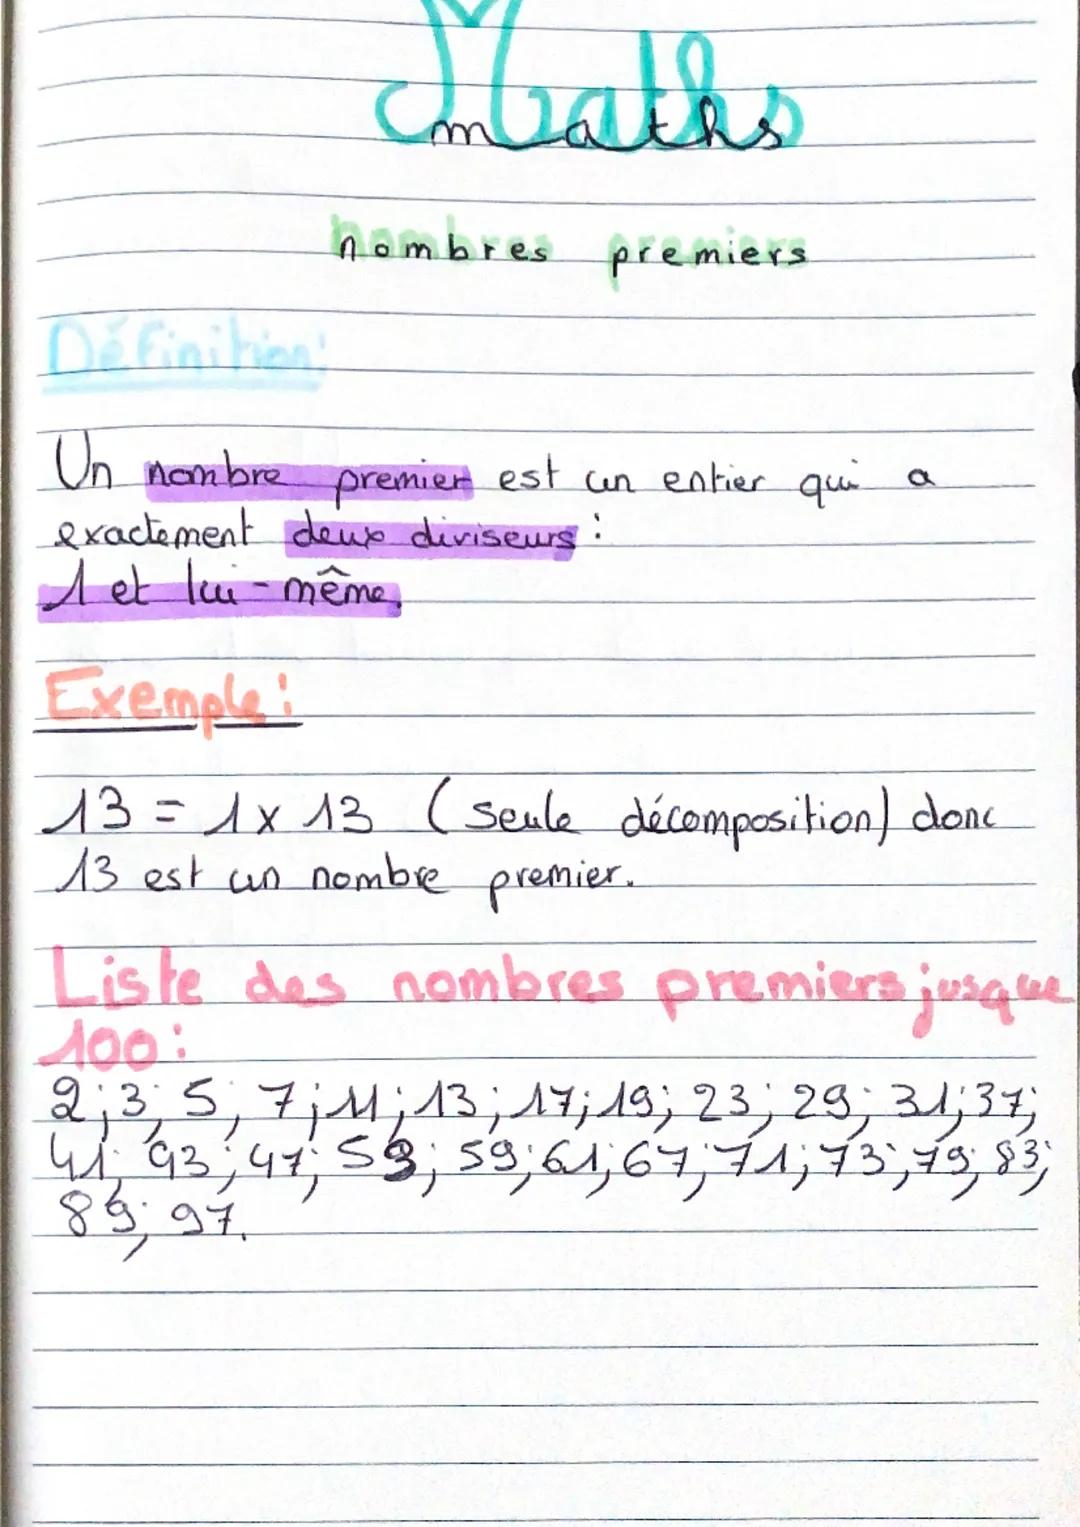 Maths
maths
nombres premiers
Définition:
Un nombre premier est un entier qui a
exactement deux diviseurs :
1 et lui-même.
Exemple :
13 = 1 x 13 (seule décomposition) donc
13 est un nombre premier.
Liste des nombres premiers jusque
100 :
2; 3; 5; 7; 11; 13; 17; 19; 23; 29; 31; 37;
41; 43; 47; 53; 59; 61; 67; 71; 73; 79; 83;
89; 97.